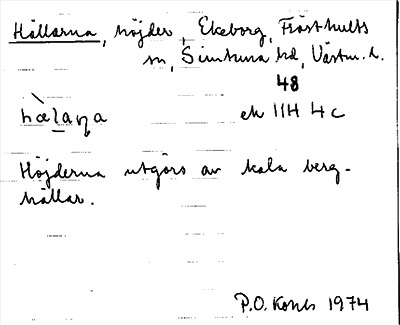 Hällarna, höjder, Ekeborg, Frösthults
sn, Simtuna hd, Västm. l.
48
hὰlaṇa ek 11H 4c
Höjderna utgörs av kala berg-
hällar.
P.O. 1974